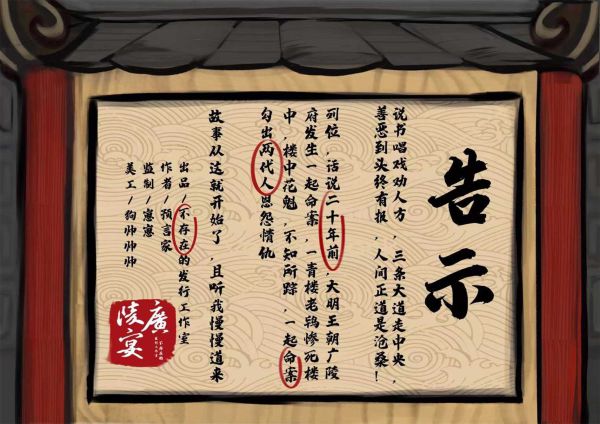 告示
说书唱戏劝人方，三条大道走中央，
善恶到头终有报，人间正道是沧桑！
列位，话说二十年前，大明王朝广陵
府发生一起命案，一青楼老鸨惨死楼
中，楼中花魁，不知所踪，一起命案
勾出两代人恩怨情仇
故事从这就开始了，且听我慢慢道来
出品/不存在的发行工作室
作者/预言家
监制/崽崽
美工/狗帅帅帅
廣
陵宴